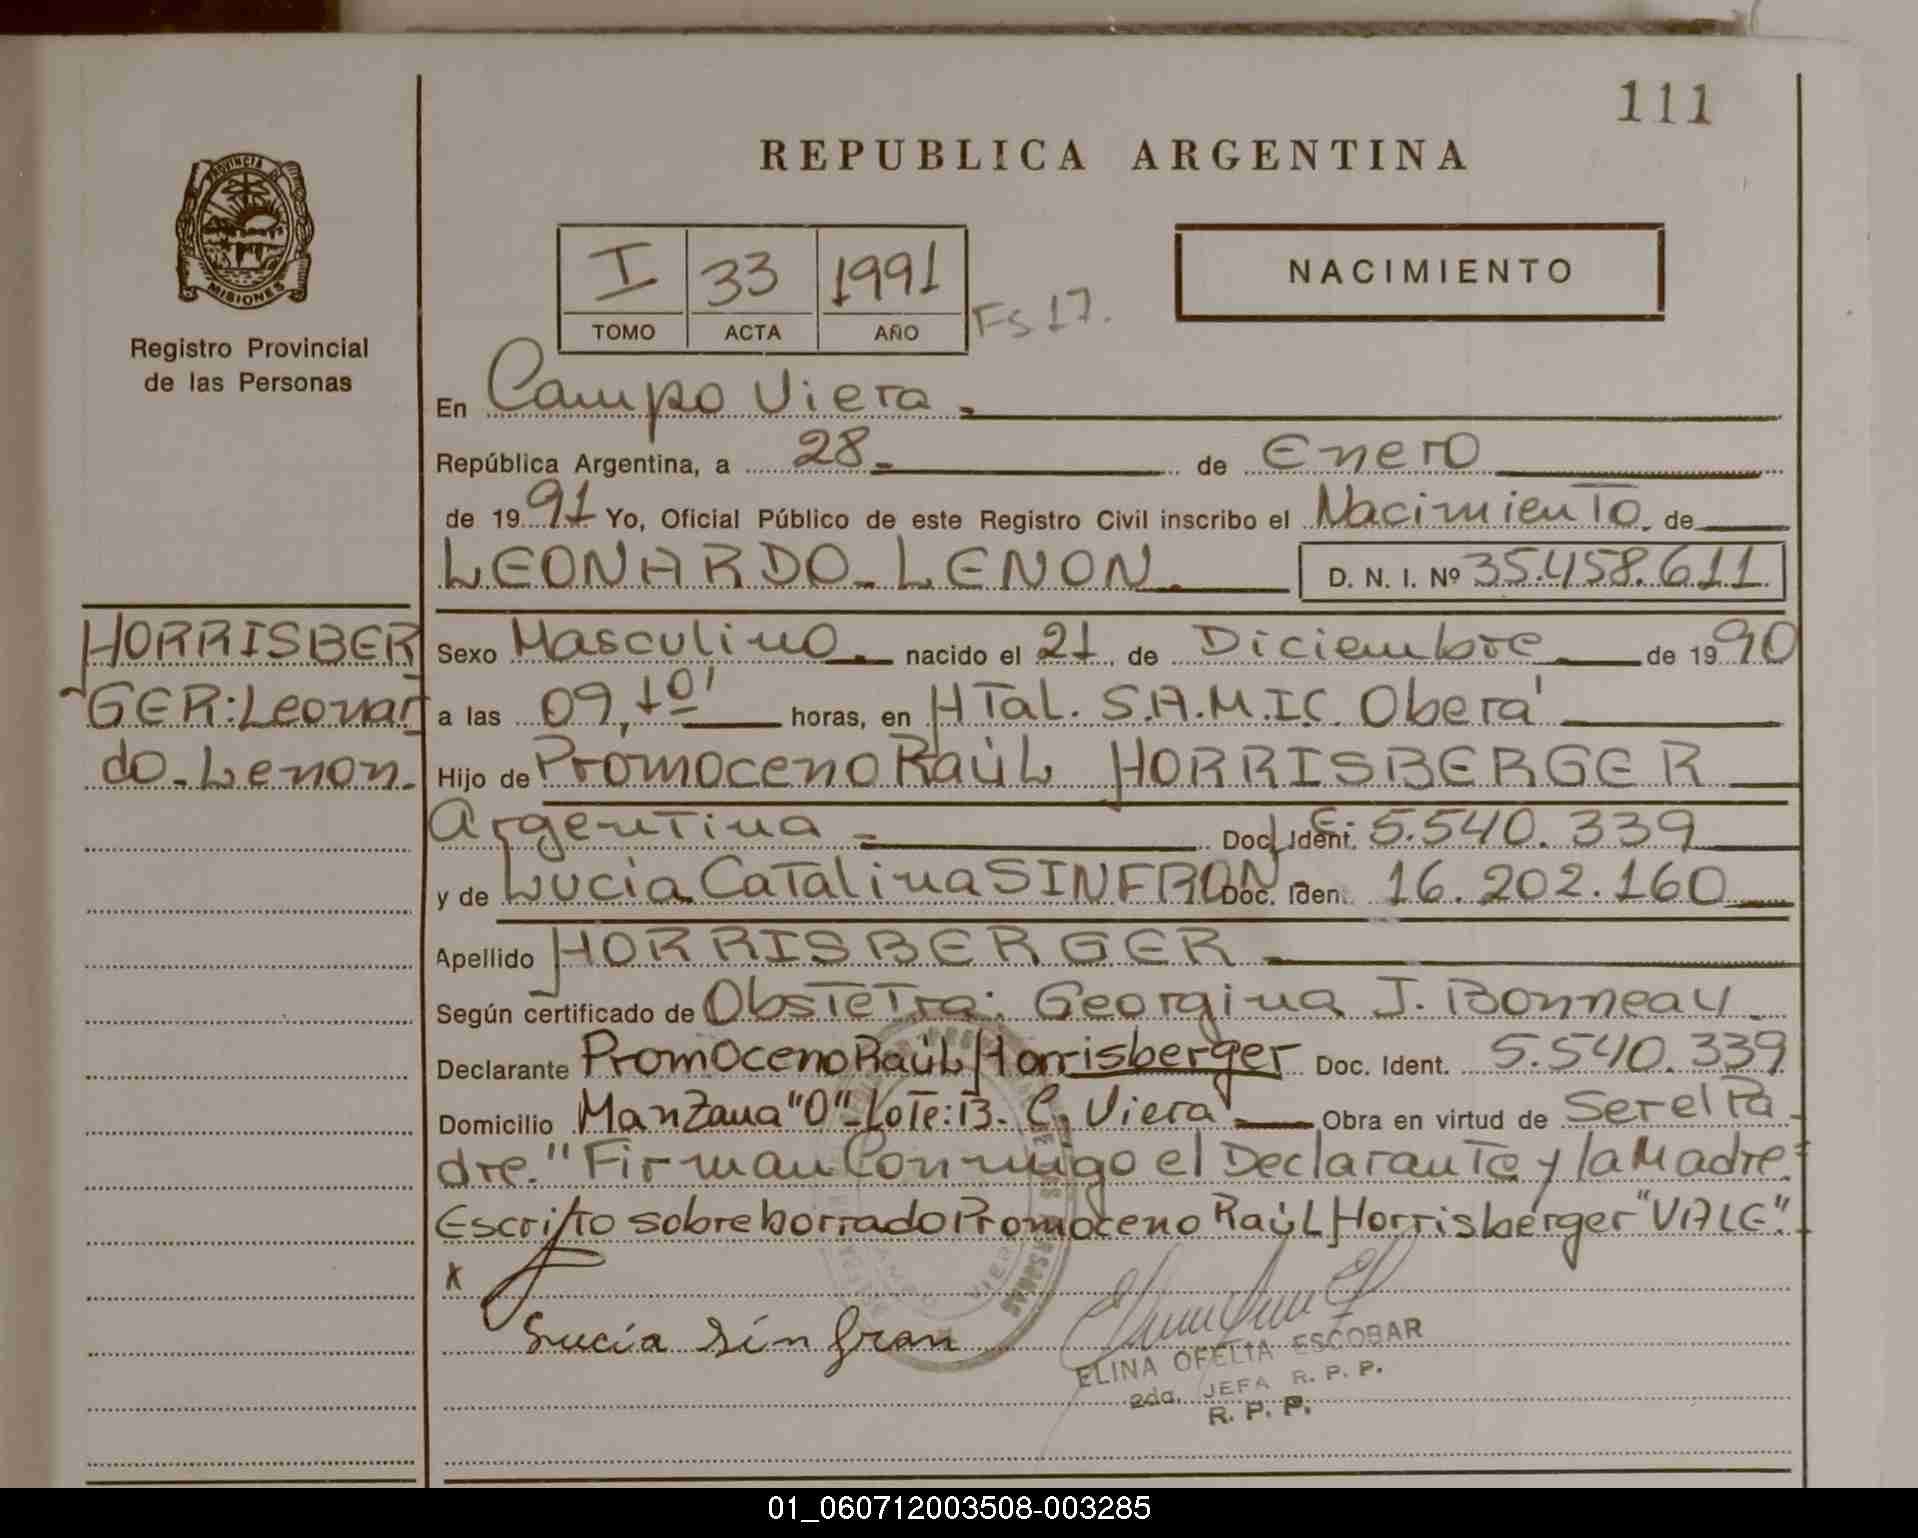 111
REPUBLICA ARGENTINA
PROVINCIA DE
MISIONES
Registro Provincial
de las Personas
I 33 1991 Fs 17.
TOMO ACTA AÑO
NACIMIENTO
En Campo Viera
República Argentina, a 28 de Enero
de 1991 Yo, Oficial Público de este Registro Civil inscribo el Nacimiento de
LEONARDO LENON D. N. I. Nº 35.458.611
HORRISBER
GER: Leonar
do Lenon.
Sexo Masculino. nacido el 21 de Diciembre de 1990
a las 09,10' horas, en HTal. S.A.M.I.C. Oberá
Hijo de Promoceno Raúl HORRISBERGER
Argentina Doc. Ident. 5.540.339
y de Lucia Catalina SINFRON Doc. Iden. 16.202.160
Apellido HORRISBERGER
Según certificado de Obstetra: Georgina J. Bonneau.
Declarante Promoceno Raúl Horrisberger Doc. Ident. 5.540.339
Domicilio Manzana "O" Lote: 13. C. Viera Obra en virtud de Ser el Pa
dre." Firman Conmigo el Declarante y la Madre:
Escrito sobre borrado Promoceno Raúl Horrisberger "VALE".
x
Lucia Sinfran
ELINA OFELIA ESCOBAR
2da. JEFA R. P. P.
R. P. P.
01_060712003508-003285